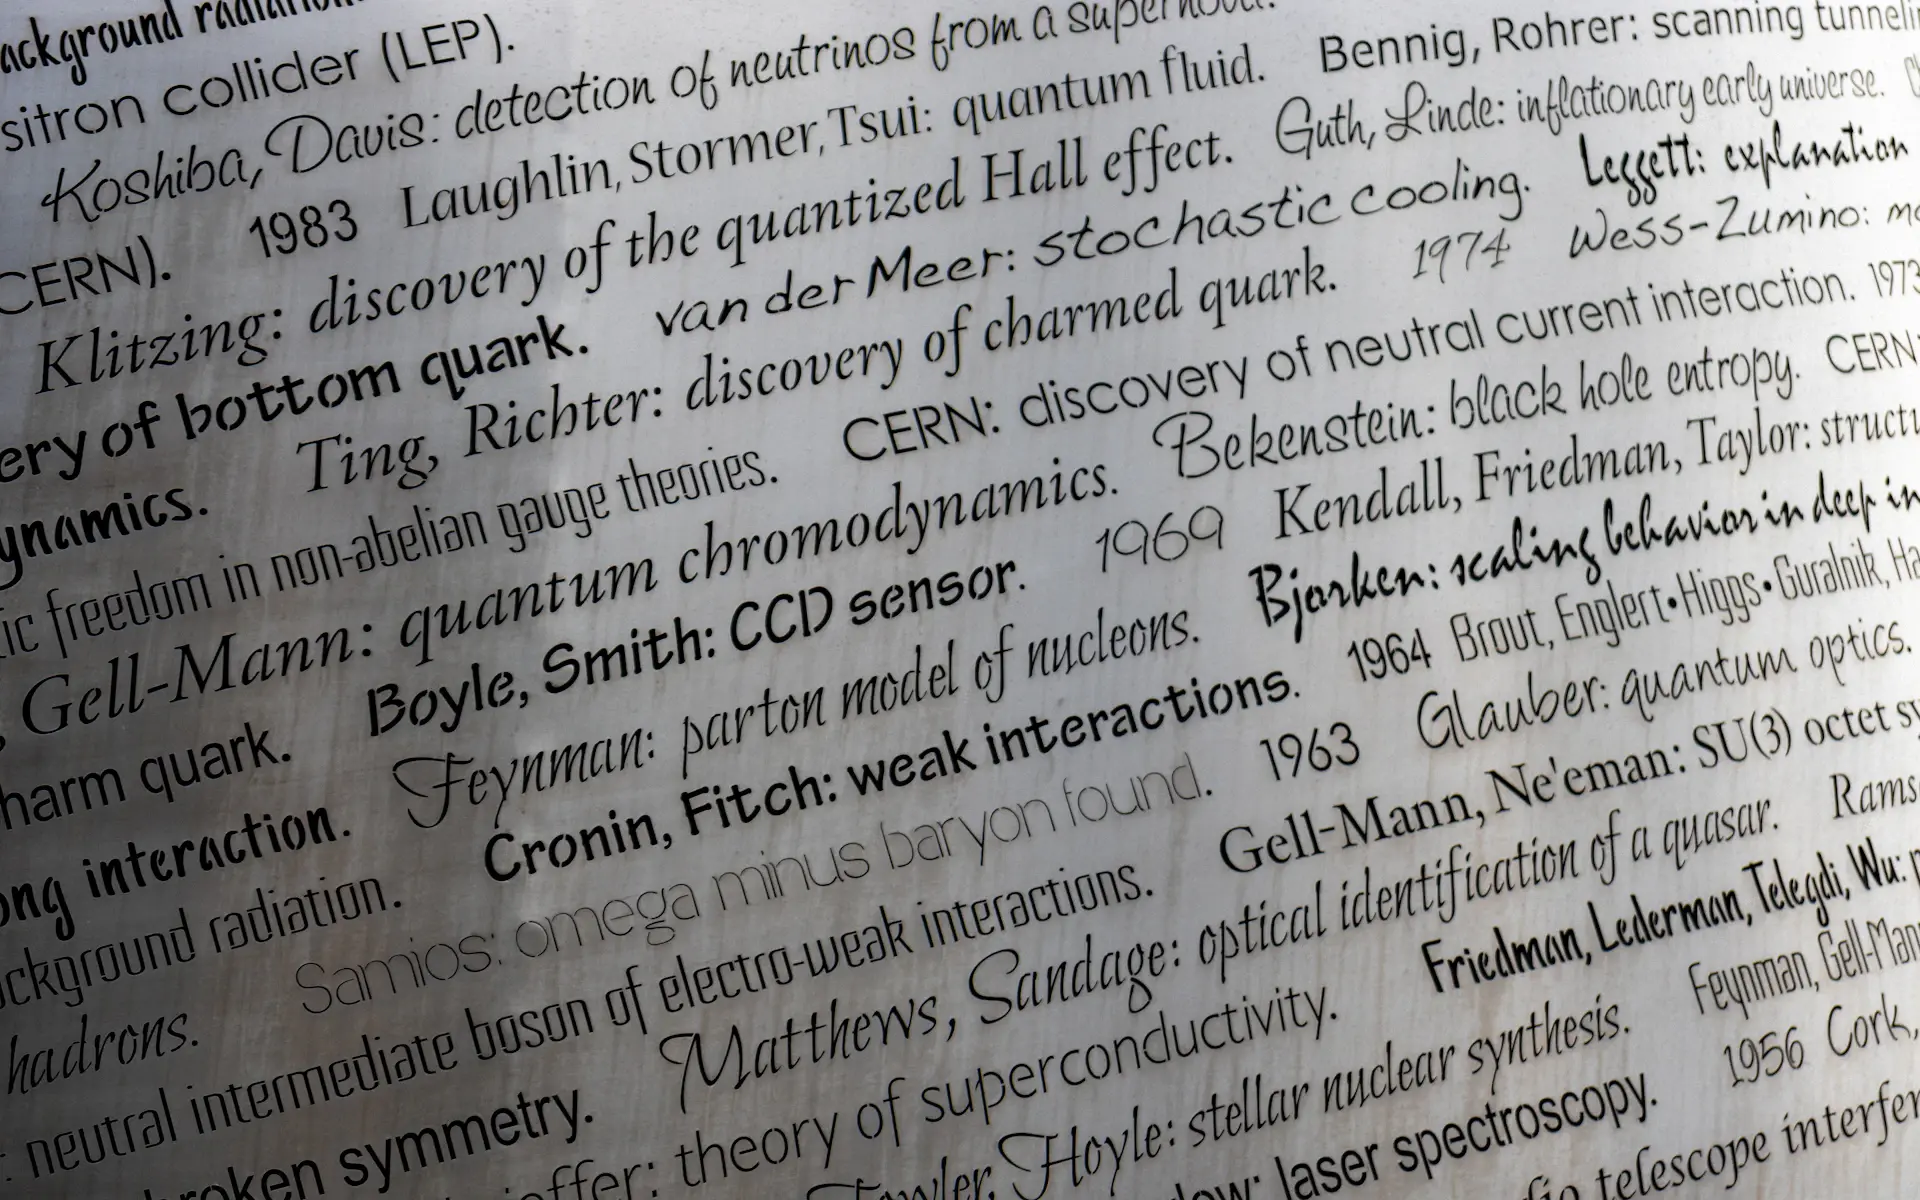 ackground radiation
sitron collider (LEP).
Koshiba, Davis: detection of neutrinos from a supernova.
CERN). 1983 Laughlin, Stormer, Tsui: quantum fluid. Bennig, Rohrer: scanning tunneli
Klitzing: discovery of the quantized Hall effect. Guth, Linde: inflationary early universe.
ery of bottom quark. van der Meer: stochastic cooling. Leggett: explanation
ynamics. Ting, Richter: discovery of charmed quark. 1974 Wess-Zumino: mo
ic freedom in non-abelian gauge theories. CERN: discovery of neutral current interaction. 1973
, Gell-Mann: quantum chromodynamics. Bekenstein: black hole entropy. CERN:
harm quark. Boyle, Smith: CCD sensor. 1969 Kendall, Friedman, Taylor: structu
ong interaction. Feynman: parton model of nucleons. Bjorken: scaling behavior in deep in
ckground radiation. Cronin, Fitch: weak interactions. 1964 Brout, Englert•Higgs•Guralnik, Ha
hadrons. Samios: omega minus baryon found. 1963 Glauber: quantum optics.
: neutral intermediate boson of electro-weak interactions. Gell-Mann, Ne'eman: SU(3) octet sy
roken symmetry. Matthews, Sandage: optical identification of a quasar. Rams
effer: theory of superconductivity. Friedman, Lederman, Telegdi, Wu: p
Fowler, Hoyle: stellar nuclear synthesis. Feynman, Gell-Mann
low: laser spectroscopy. 1956 Cork,
dio telescope interfer